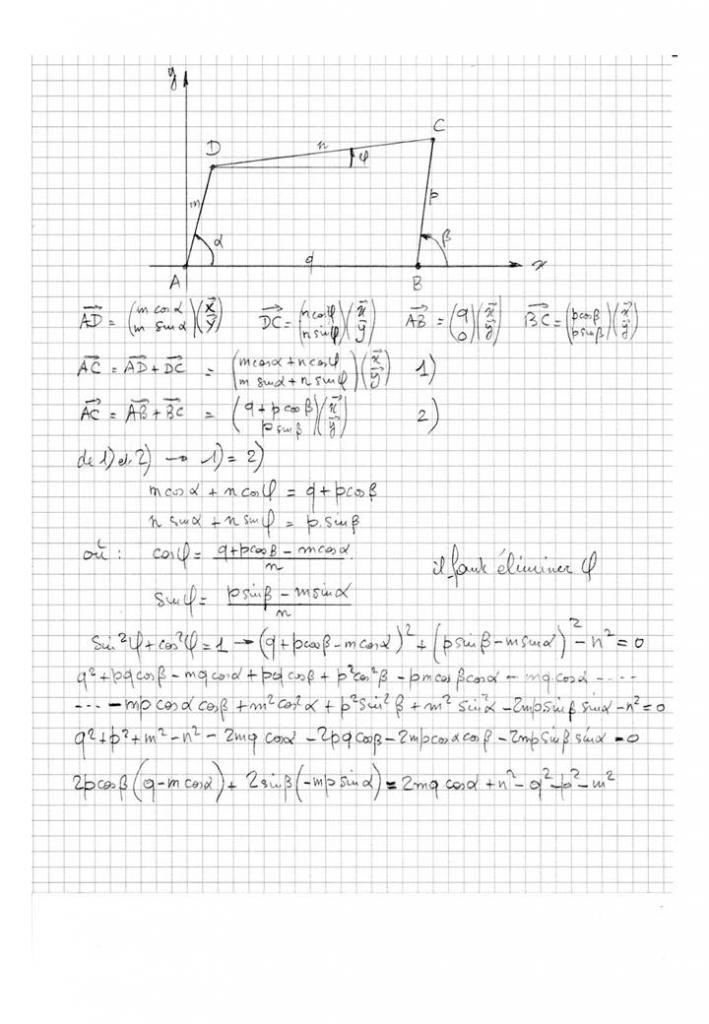 y
D n C
φ
m p
α β
A q B x
AD→ = (m cosα / m sinα)(x→ / y→) DC→ = (n cosφ / n sinφ)(x→ / y→) AB→ = (q / 0)(x→ / y→) BC→ = (p cosβ / p sinβ)(x→ / y→)
AC→ = AD→ + DC→ = (m cosα + n cosφ / m sinα + n sinφ)(x→ / y→) 1)
AC→ = AB→ + BC→ = (q + p cosβ / p sinβ)(x→ / y→) 2)
de 1) et 2) → 1) = 2)
m cosα + n cosφ = q + p cosβ
n sinα + n sinφ = p. sinβ
où : cosφ = (q + p cosβ − m cosα) / n
il faut éliminer φ
sinφ = (p sinβ − m sinα) / n
sin²φ + cos²φ = 1 → (q + p cosβ − m cosα)² + (p sinβ − m sinα)² − n² = 0
q² + pq cosβ − mq cosα + pq cosβ + p² cos²β − pm cosβ cosα − mq cosα − ....
... − mp cosα cosβ + m² cos²α + p² sin²β + m² sin²α − 2mp sinβ sinα − n² = 0
q² + p² + m² − n² − 2mq cosα − 2pq cosβ − 2mp cosα cosβ − 2mp sinβ sinα = 0
2p cosβ (q − m cosα) + 2 sinβ (−mp sinα) = 2mq cosα + n² − q² − p² − m²